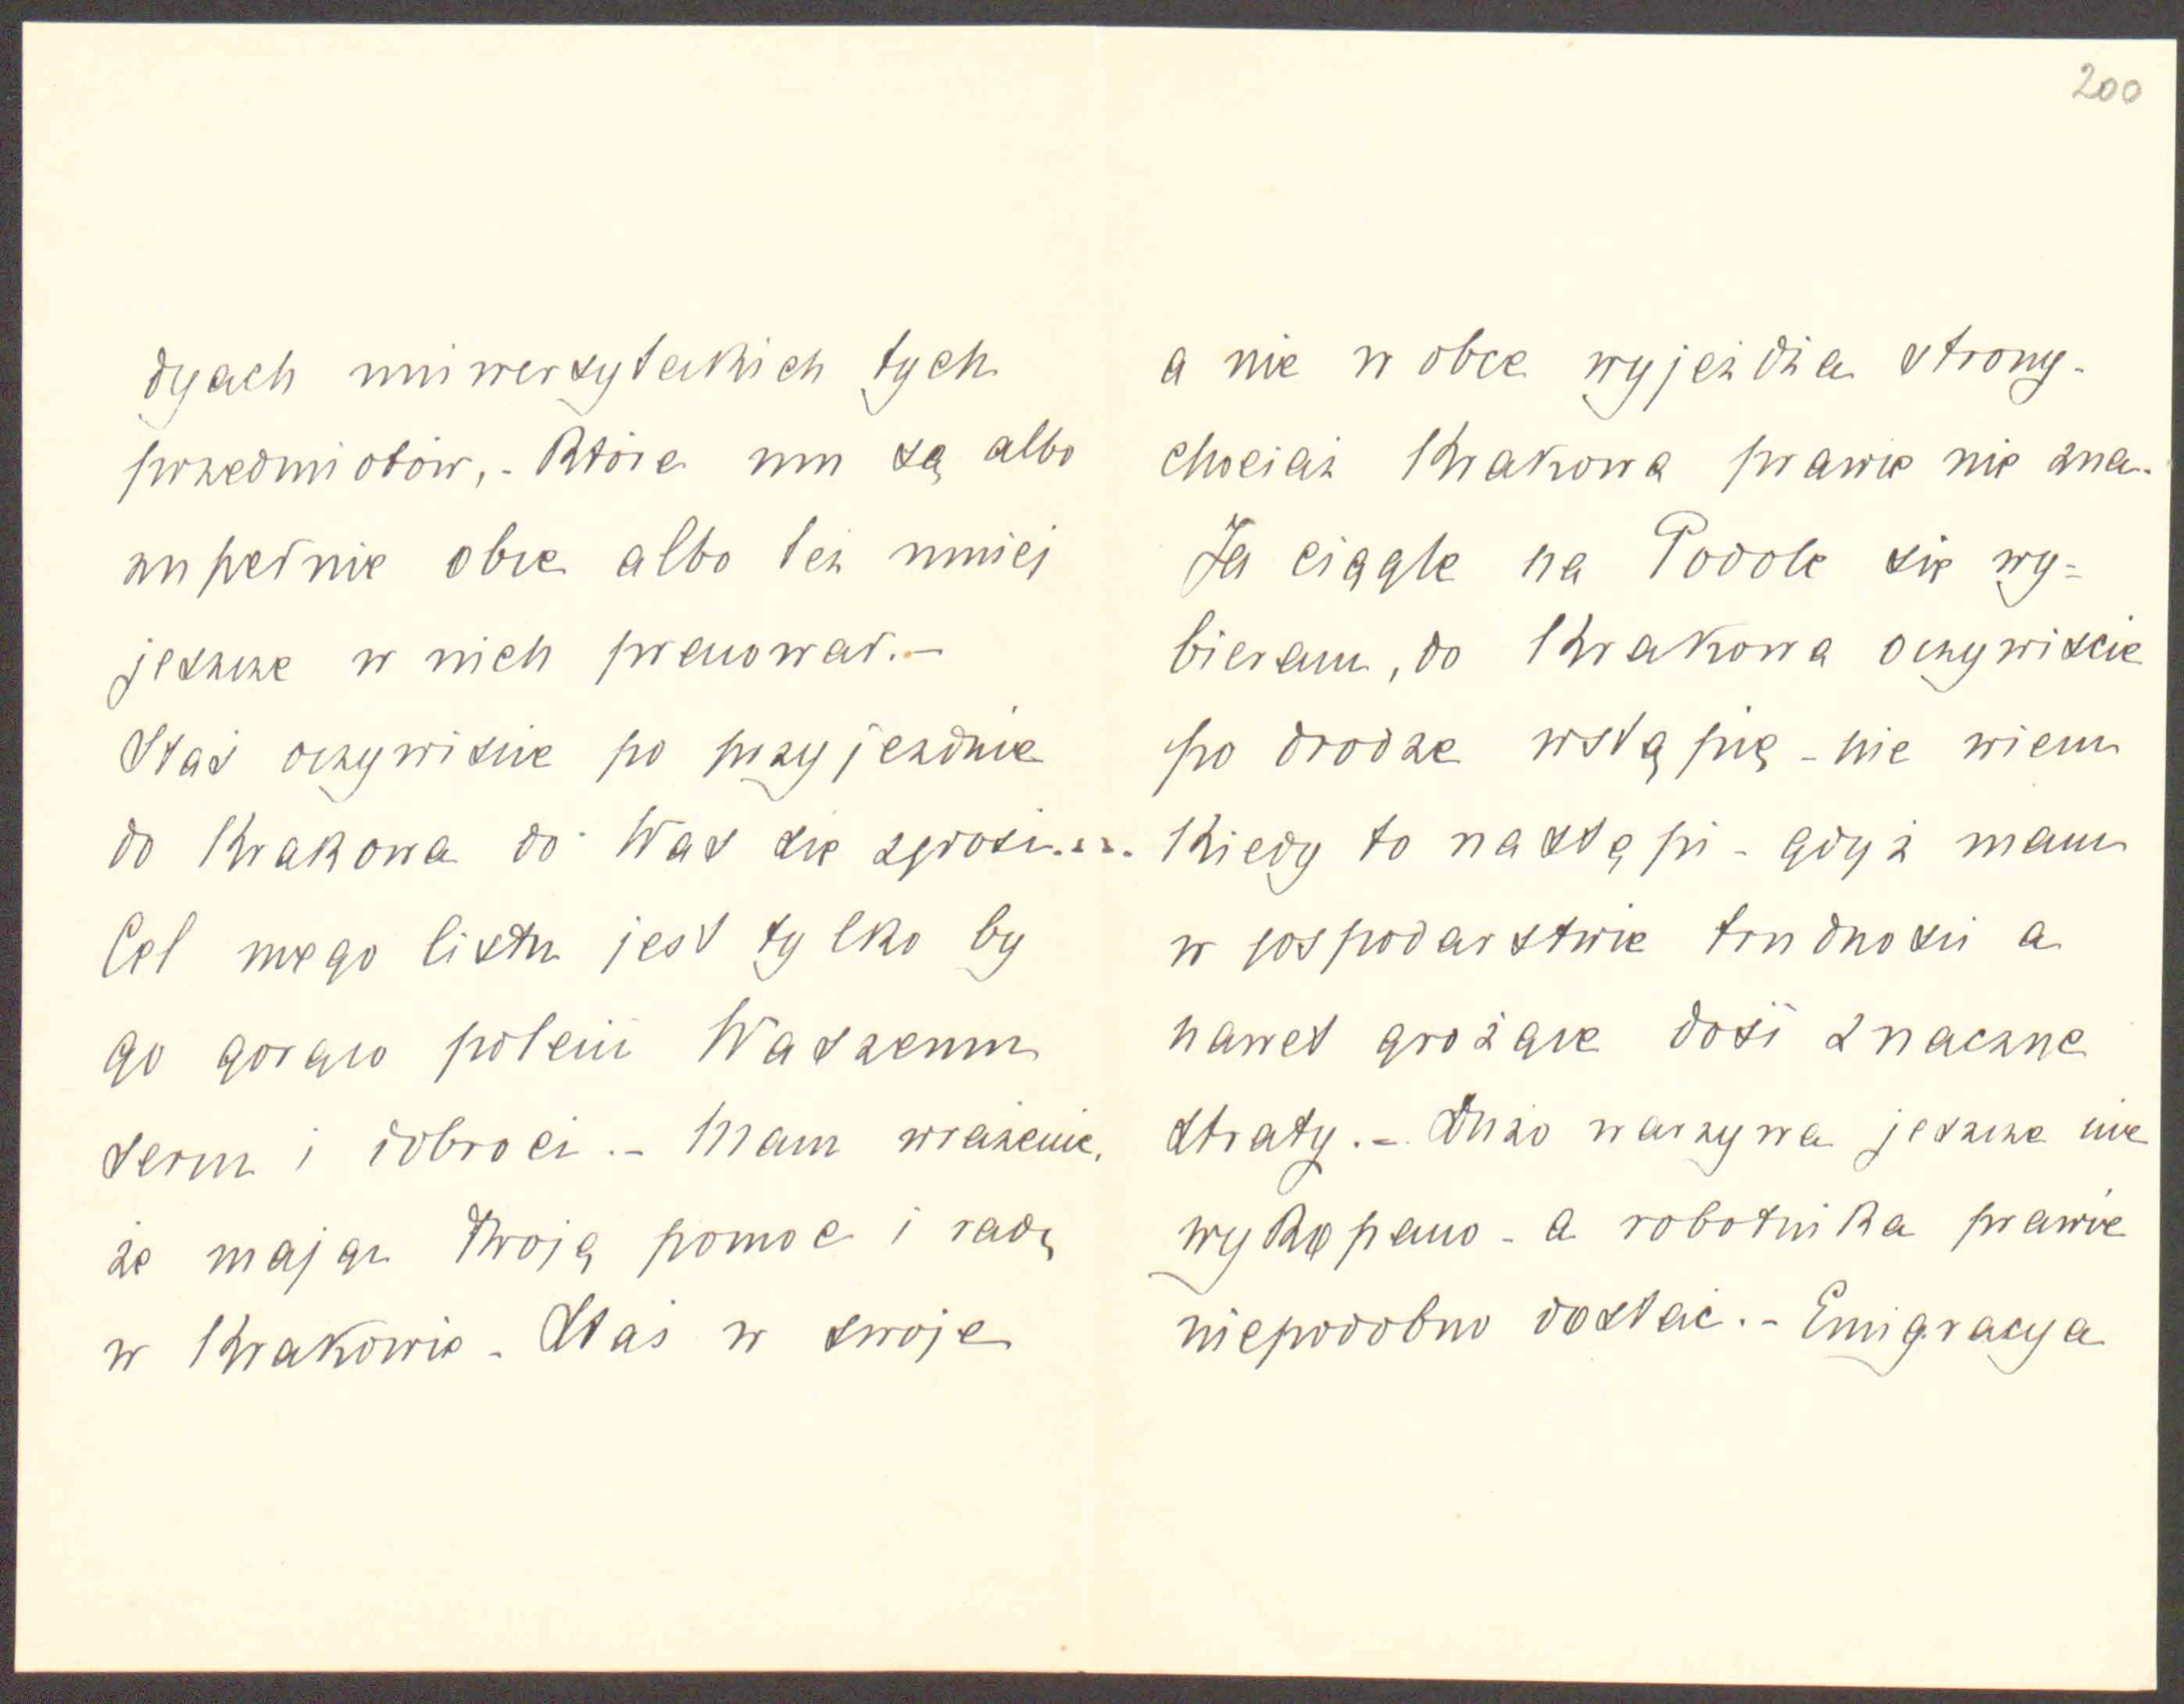 200
dyach uniwersyteckich tych
przedmiotów,- które mu są albo
zupełnie obce albo też mniej
jeszcze w nich pracował.-
Staś oczywiście po przyjeździe
do Krakowa do Was się zgłosi....
Cel mego listu jest tylko by
go gorąco polecić Waszemu
sercu i dobroci.- Mam wrażenie,
że mając Twoją pomoc i radę
w Krakowie - Staś w swoje
a nie w obce wyjeżdża strony-
chociaż Krakowa prawie nie zna.
Ja ciągle na Podole się wy=
bieram, do Krakowa oczywiście
po drodze wstąpię - nie wiem
kiedy to nastąpi - gdyż mam
w gospodarstwie trudności a
nawet grożące dość znaczne
straty.- Dużo warzywa jeszcze nie
wykopano - a robotnika prawie
niepodobno dostać.- Emigracya